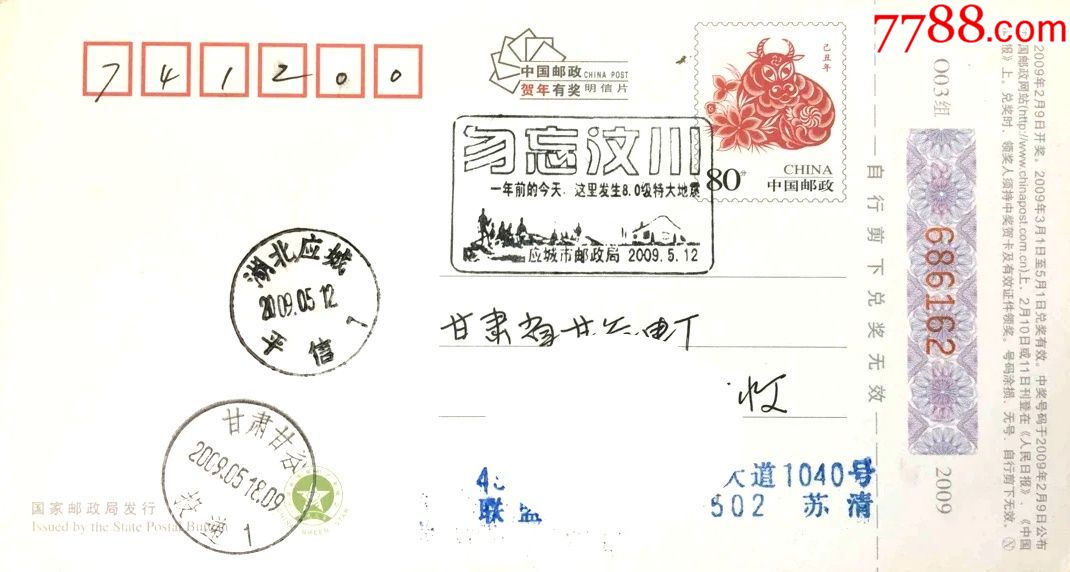 7788.com
741200
中国邮政 CHINA POST
贺年有奖 明信片
己丑年
CHINA
80分 中国邮政
勿忘汶川
一年前的今天，这里发生8.0级特大地震
应城市邮政局 2009.5.12
湖北应城
2009.05.12
平信 1
甘肃省甘谷电厂
收
甘肃甘谷
2009.05.18.09
投递 1
大道1040号
联盟 502 苏清
国家邮政局发行
Issued by the State Postal Bureau
自行剪下兑奖无效
003组
686162
2009
2009年2月9日开奖。2009年3月1日至5月1日兑奖有效。中奖号码于2009年2月9日公布
国邮政网站(http://www.chinapost.com.cn)上，2月10日或11日刊登在《人民日报》、《中国
》上。兑奖时，领奖人须持中奖贺卡及有效证件领奖。号码涂损、无号、自行剪下无效。